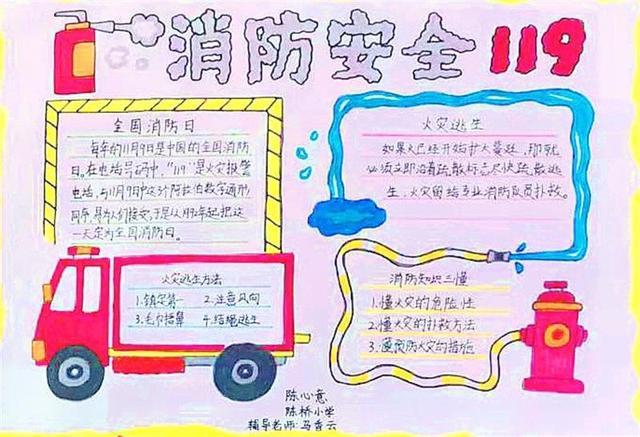 消防安全 119
全国消防日
每年的11月9日是中国的全国消防
日。在电话号码中，"119"是火灾报警
电话，与11月9日中这3个阿拉伯数字
同序，于是从1992年起把这
一天定为全国消防日。
火灾逃生
如果火已经开始扩大蔓延，那就
必须立即沿着疏散标志尽快疏散逃
生，火灾留给专业消防队员扑救。
火灾逃生方法
1.镇定第一 2.注意风向
3.毛巾捂鼻 4.结绳逃生
消防知识三懂
1.懂火灾的危险性
2.懂火灾的扑救方法
3.懂预防火灾的措施
陈心意
陈桥小学
辅导老师:马香云